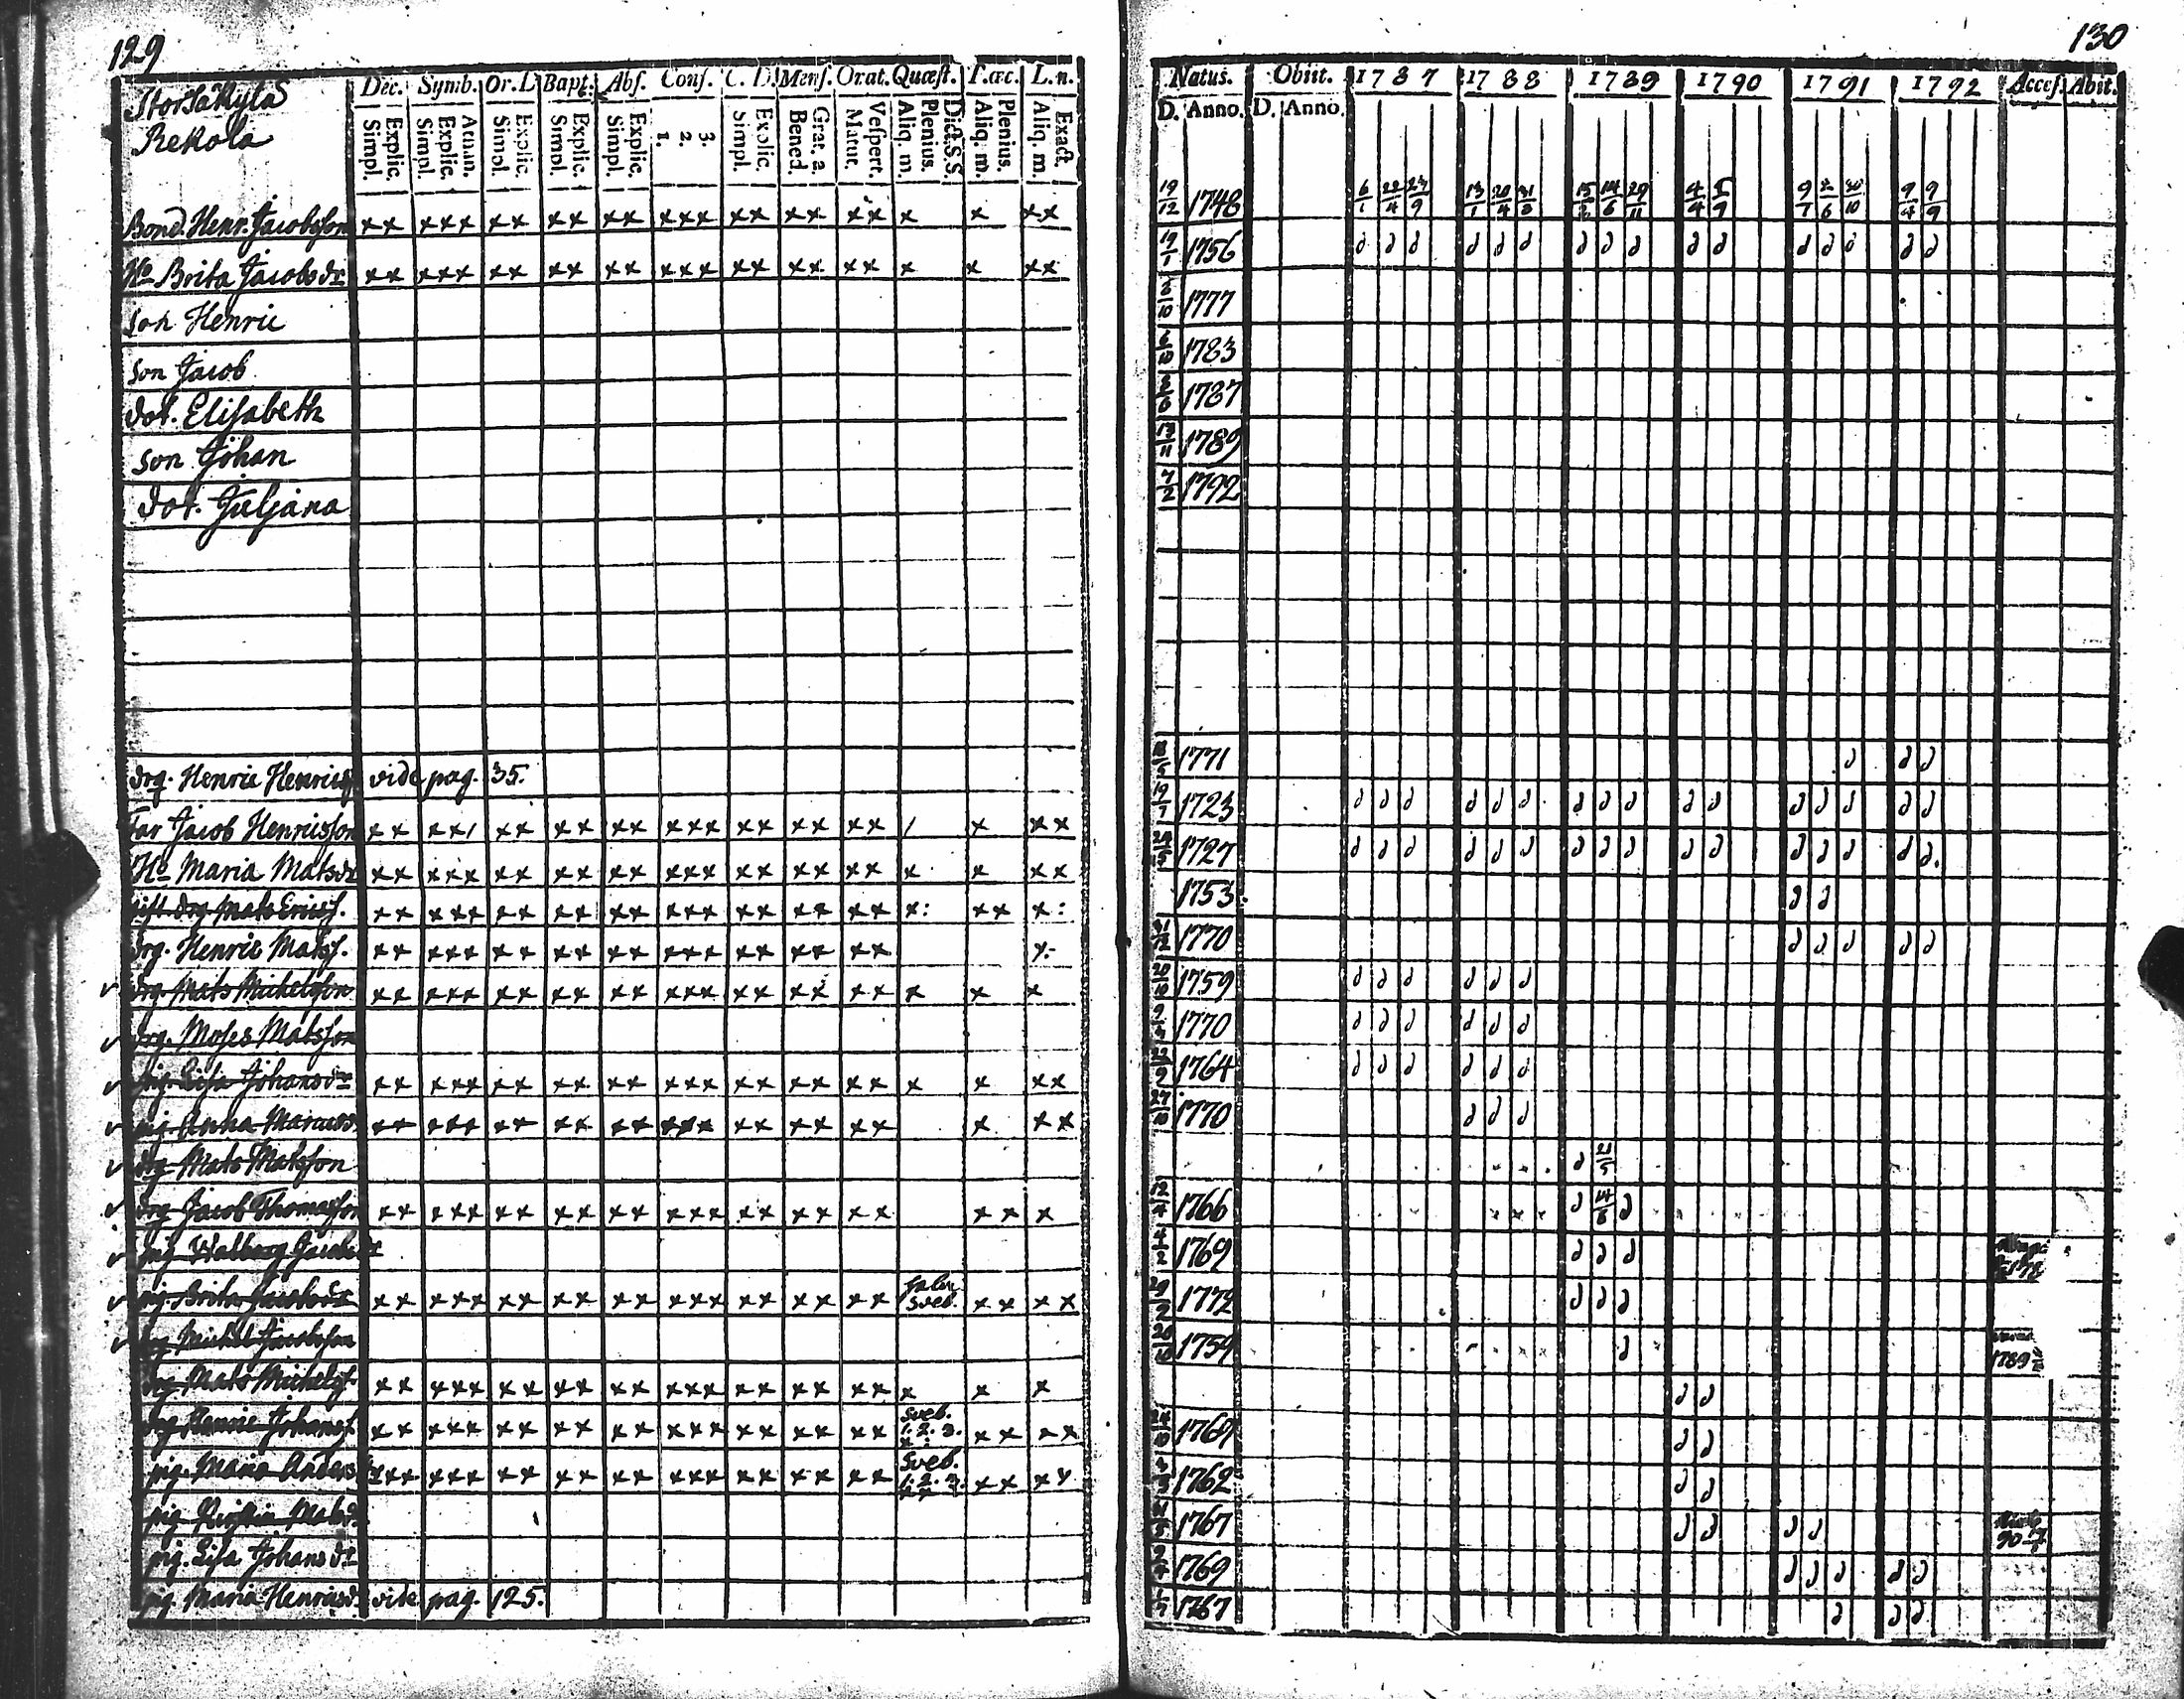 129
Storsäkylä
Rekola
Dec. Symb. Or. D Bapt. Abs. Conf. C. D. Mens. Orat. Quæst. T.œc. L. n.
Simpl. Explic. Simpl. Explic. Athan. Simpl. Explic. Simpl. Explic. Simpl. Explic. 1. 2. 3. Simpl. Explic. Bened. Grat. a Matut. Vespert. Aliq. m. Plenius. Dict. S.S. Aliq. m. Plenius. Aliq. m. Exact.
Bond. Henr. Jacobsson xx xxx xx xx xx xxx xx xx xx x x xx
Ho Brita Jacobsdr xx xxx xx xx xx xxx xx xx xx x x xx
son Henric
son Jacob
dot. Elisabeth
son Johan
dot. Juljana
drg. Henric Henricss vide pag. 35.
Far Jacob Henricsson xx xx/ xx xx xx xxx xx xx xx / x xx
Ho Maria Matsdr xx xxx xx xx xx xxx xx xx xx x x xx
gift drg Mats Ericss. xx xxx xx xx xx xxx xx xx xx x: xx x:
drg. Henric Matss. xx xxx xx xx xx xxx xx xx xx x:
v drg. Mats Michelsson xx xxx xx xx xx xxx xx xx xx x x x
v drg. Moses Matsson
v pig. Lisa Johansdr xx xxx xx xx xx xxx xx xx xx x x xx
v pig Anna Marcusd. xx xxx xx xx xx xxx xx xx xx x xx
v drg Mats Matsson
v drg Jacob Thomasson xx xxx xx xx xx xxx xx xx xx xx x
v pig Walborg Jacobsdr
v pig. Brita Jacobsdr xx xxx xx xx xx xxx xx xx xx sveb. xx xx
v drg Michel Jacobsson
drg Mats Michelss. xx xxx xx xx xx xxx xx xx xx x x x
drg Henric Johanss. xx xxx xx xx xx xxx xx xx xx sveb. 1. 2. 3. xx xx
pig. Maria Anders xxx xxx xx xx xx xxx xx xx xx Sveb. 1. 2. 3. xx xx
pig Matsd
pig. Lisa Johansdr
pig Maria Henricsd. vide pag. 125.
130
Natus. Obiit. 1787 1788 1789 1790 1791 1792 Acces. Abit.
D. Anno. D. Anno.
19/12 1748 6/1 22/4 23/9 13/1 20/4 31/8 14/6 29/11 4/4 5/9 9/7 2/6 30/10 9/4 9/9
19/1 1756
1777
6/10 1783
1787
1789
7/2 1792
1771
19/7 1723
1727
1753.
31/12 1770
20/10 1759
1770
1764
27/10 1770
21/5
1766 14/6
1769
1772
1759 1789
1769
1762
1767 90
1769
1767